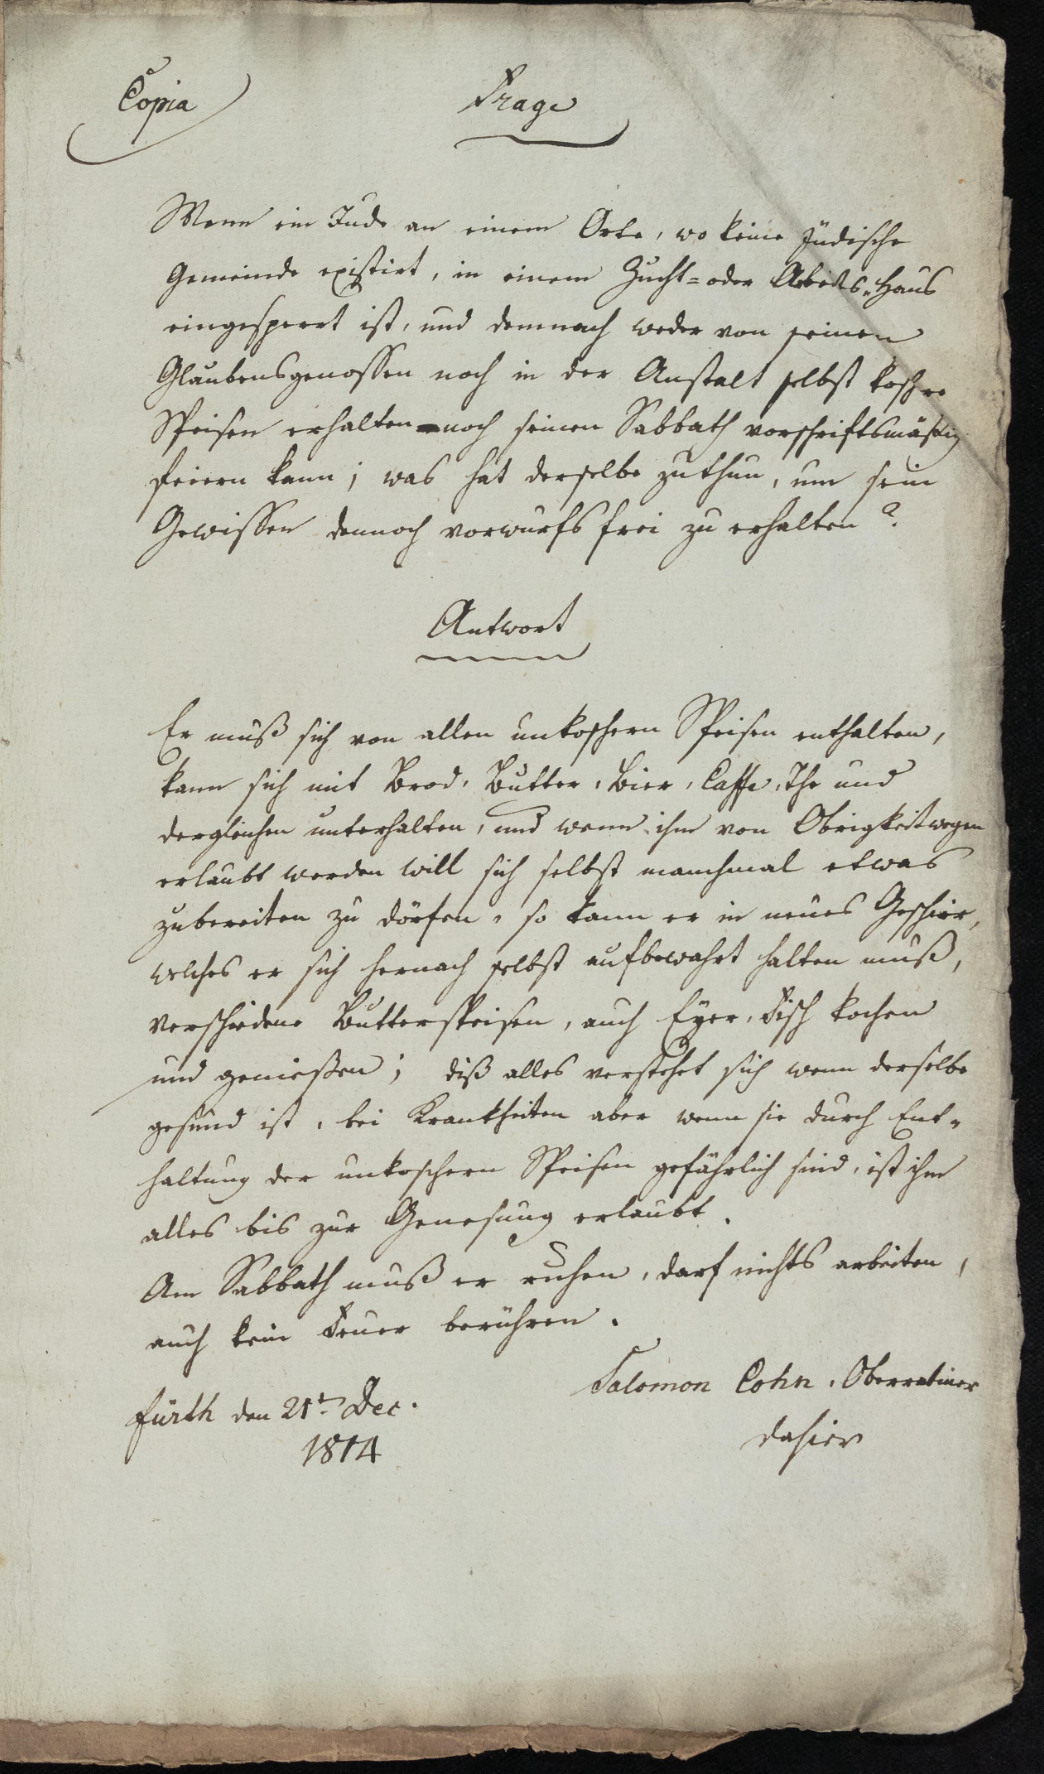 Copia
Frage
Wenn ein Jude an einem Orte, wo keine jüdische
Gemeinde existirt, in einem Zucht= oder Arbeits-Haus
eingesperrt ist, und demnach weder von seinen
Glaubensgenossen noch in der Anstalt selbst koschre
Speisen erhalten noch seinen Sabbath vorschriftsmäßig
feiern kann; was hat derselbe zu thun, um sein
Gewissen dennoch vorwurfsfrei zu erhalten?
Antwort
Er muß sich von allen unkoschern Speisen enthalten,
kann sich mit Brod, Butter, Bier, Caffe, The und
dergleichen unterhalten, und wenn ihm von Obrigkeitwegen
erlaubt werden will sich selbst manchmal etwas
zubereiten zu dörfen, so kann er in neues Geschirr,
welches er sich hernach selbst aufbewahrt halten muß,
verschiedene Butterspeisen, auch Eyer, Fisch kochen
und genießen; diß alles verstehet sich wenn derselbe
gesund ist, bei Krankheiten aber wenn sie durch Ent-
haltung der unkoschern Speisen gefährlich sind, ist ihm
alles bis zur Genesung erlaubt.
Am Sabbath muß er ruhen, darf nichts arbeiten,
auch kein Feuer berühren.
Salomon Cohn, Oberrabiner
fürth den 21t Dec.
dahier
1814